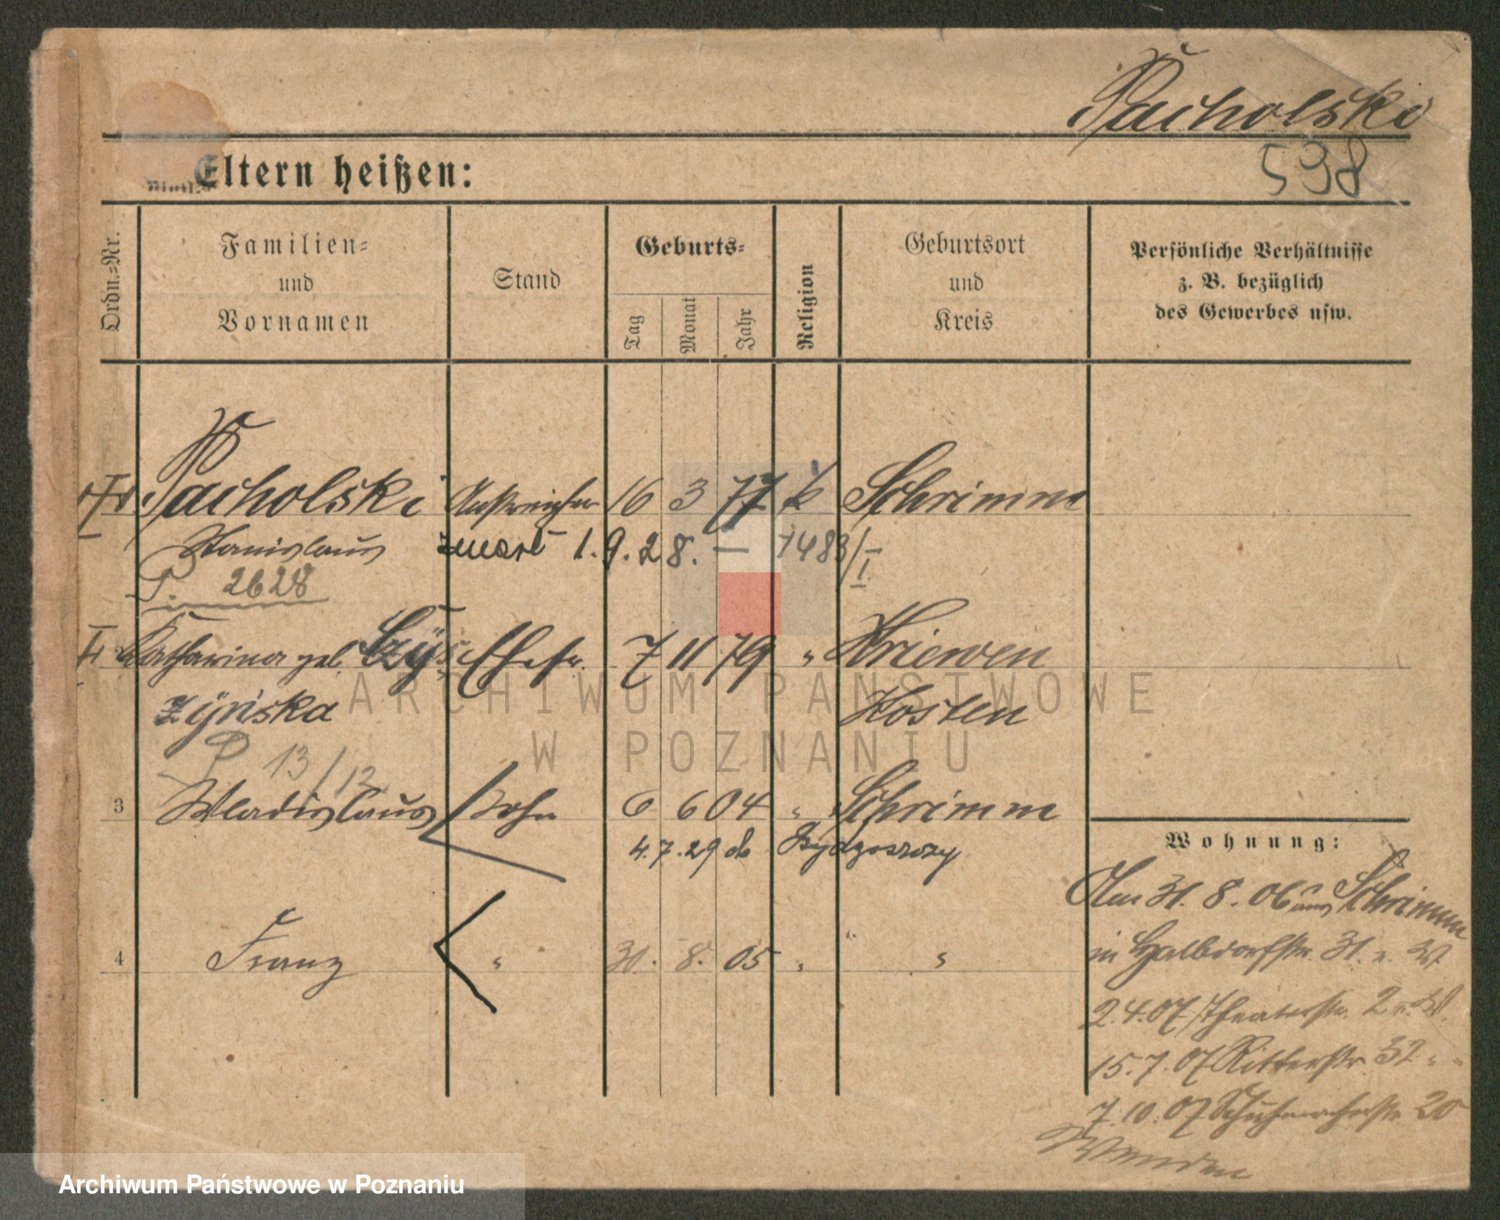 Pacholski
598
Eltern heißen:
Ordn.-Nr.
Familien-
und
Vornamen
Stand
Geburts-
Tag
Monat
Jahr
Religion
Geburtsort
und
Kreis
Persönliche Verhältnisse
z. B. bezüglich
des Gewerbes usw.
I Pacholski Anstreicher 16 3 77 k Schrimm
Stanislaus zmarł 1.9.28. — 1483/I
P. 2628
II Katharina geb. Czyż Ehefr. 7 11 79 " Kriewen
zyńska Kosten
P 13/12
3 Wladislaus Sohn 6 6 04 " Schrimm
4.7.29 do Bydgoszczy
4 Franz " 30. 8. 05 " " "
Wohnung:
Am 31. 8. 06 aus Schrimm
in Halbdorfstr. 31. b. W.
2.4.07 Theaterstr. 2 b. W.
15.7.07 Ritterstr. 32 " "
7.10.07 Schuhmacherstr 20
Wenden
ARCHIWUM PAŃSTWOWE
W POZNANIU
Archiwum Państwowe w Poznaniu